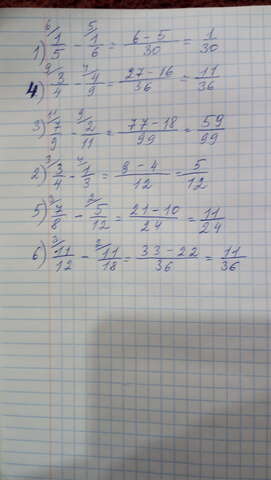 1) ⁶⁄1/5 - ⁵⁄1/6 = 6-5/30 = 1/30
4) ⁹⁄3/4 - ⁴⁄4/9 = 27-16/36 = 11/36
3) ¹¹⁄7/9 - ⁹⁄2/11 = 77-18/99 = 59/99
2) ³⁄3/4 - ⁴⁄1/3 = 9-4/12 = 5/12
5) ³⁄7/8 - ²⁄5/12 = 21-10/24 = 11/24
6) ³⁄11/12 - ²⁄11/18 = 33-22/36 = 11/36